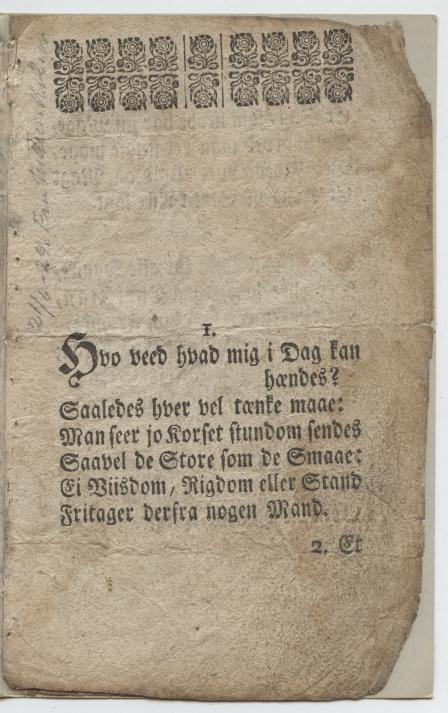 1.
Hvo veed hvad mig i Dag kan
hændes?
Saaledes hver vel tænke maae:
Man seer jo Korset stundom sendes
Saavel de Store som de Smaae:
Ei Viisdom, Rigdom eller Stand
Fritager derfra nogen Mand.
2. Et